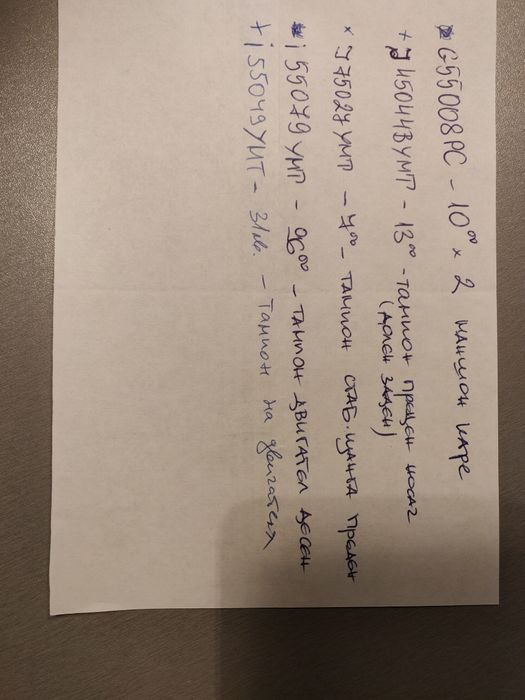 G55008PC - 10⁰⁰ x 2 маншон каре
+ J45044BYMT - 13⁰⁰ - тампон преден носач
(долен заден)
x J75027YMT - 7⁰⁰ - тампон стаб. щанга преден
i55079YMT - 96⁰⁰ - тампон двигател десен
+ i55049YMT - 31лв. - Тампон на двигателя